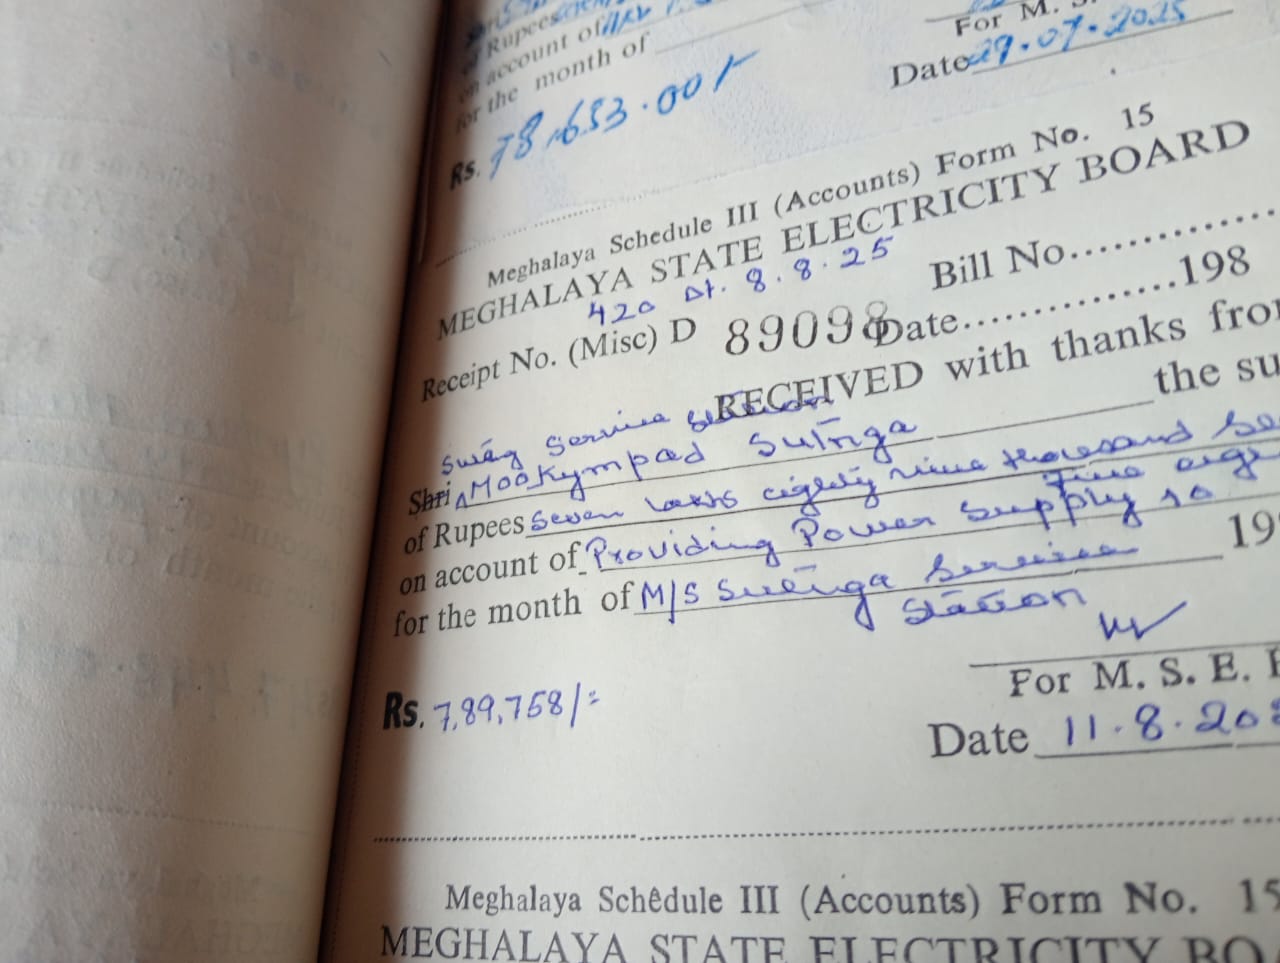 of Rupees
on account of
for the month of
Rs. 78,653.00/-
For M. S.
Date 29.07.2025
Meghalaya Schedule III (Accounts) Form No. 15
MEGHALAYA STATE ELECTRICITY BOARD
420 Dt. 8.8.25
Bill No.
Receipt No. (Misc) D 89098 Date 198
RECEIVED with thanks from
Service
Shri Mookympad Sutnga the su
of Rupees Seven lakhs eighty nine thousand Se
on account of Providing Power Supply to
for the month of M/S Sutnga Service 19
Station
Rs. 7,89,758/=
For M. S. E.
Date 11.8.202
Meghalaya Schedule III (Accounts) Form No. 15
MEGHALAYA STATE ELECTRICITY BOA